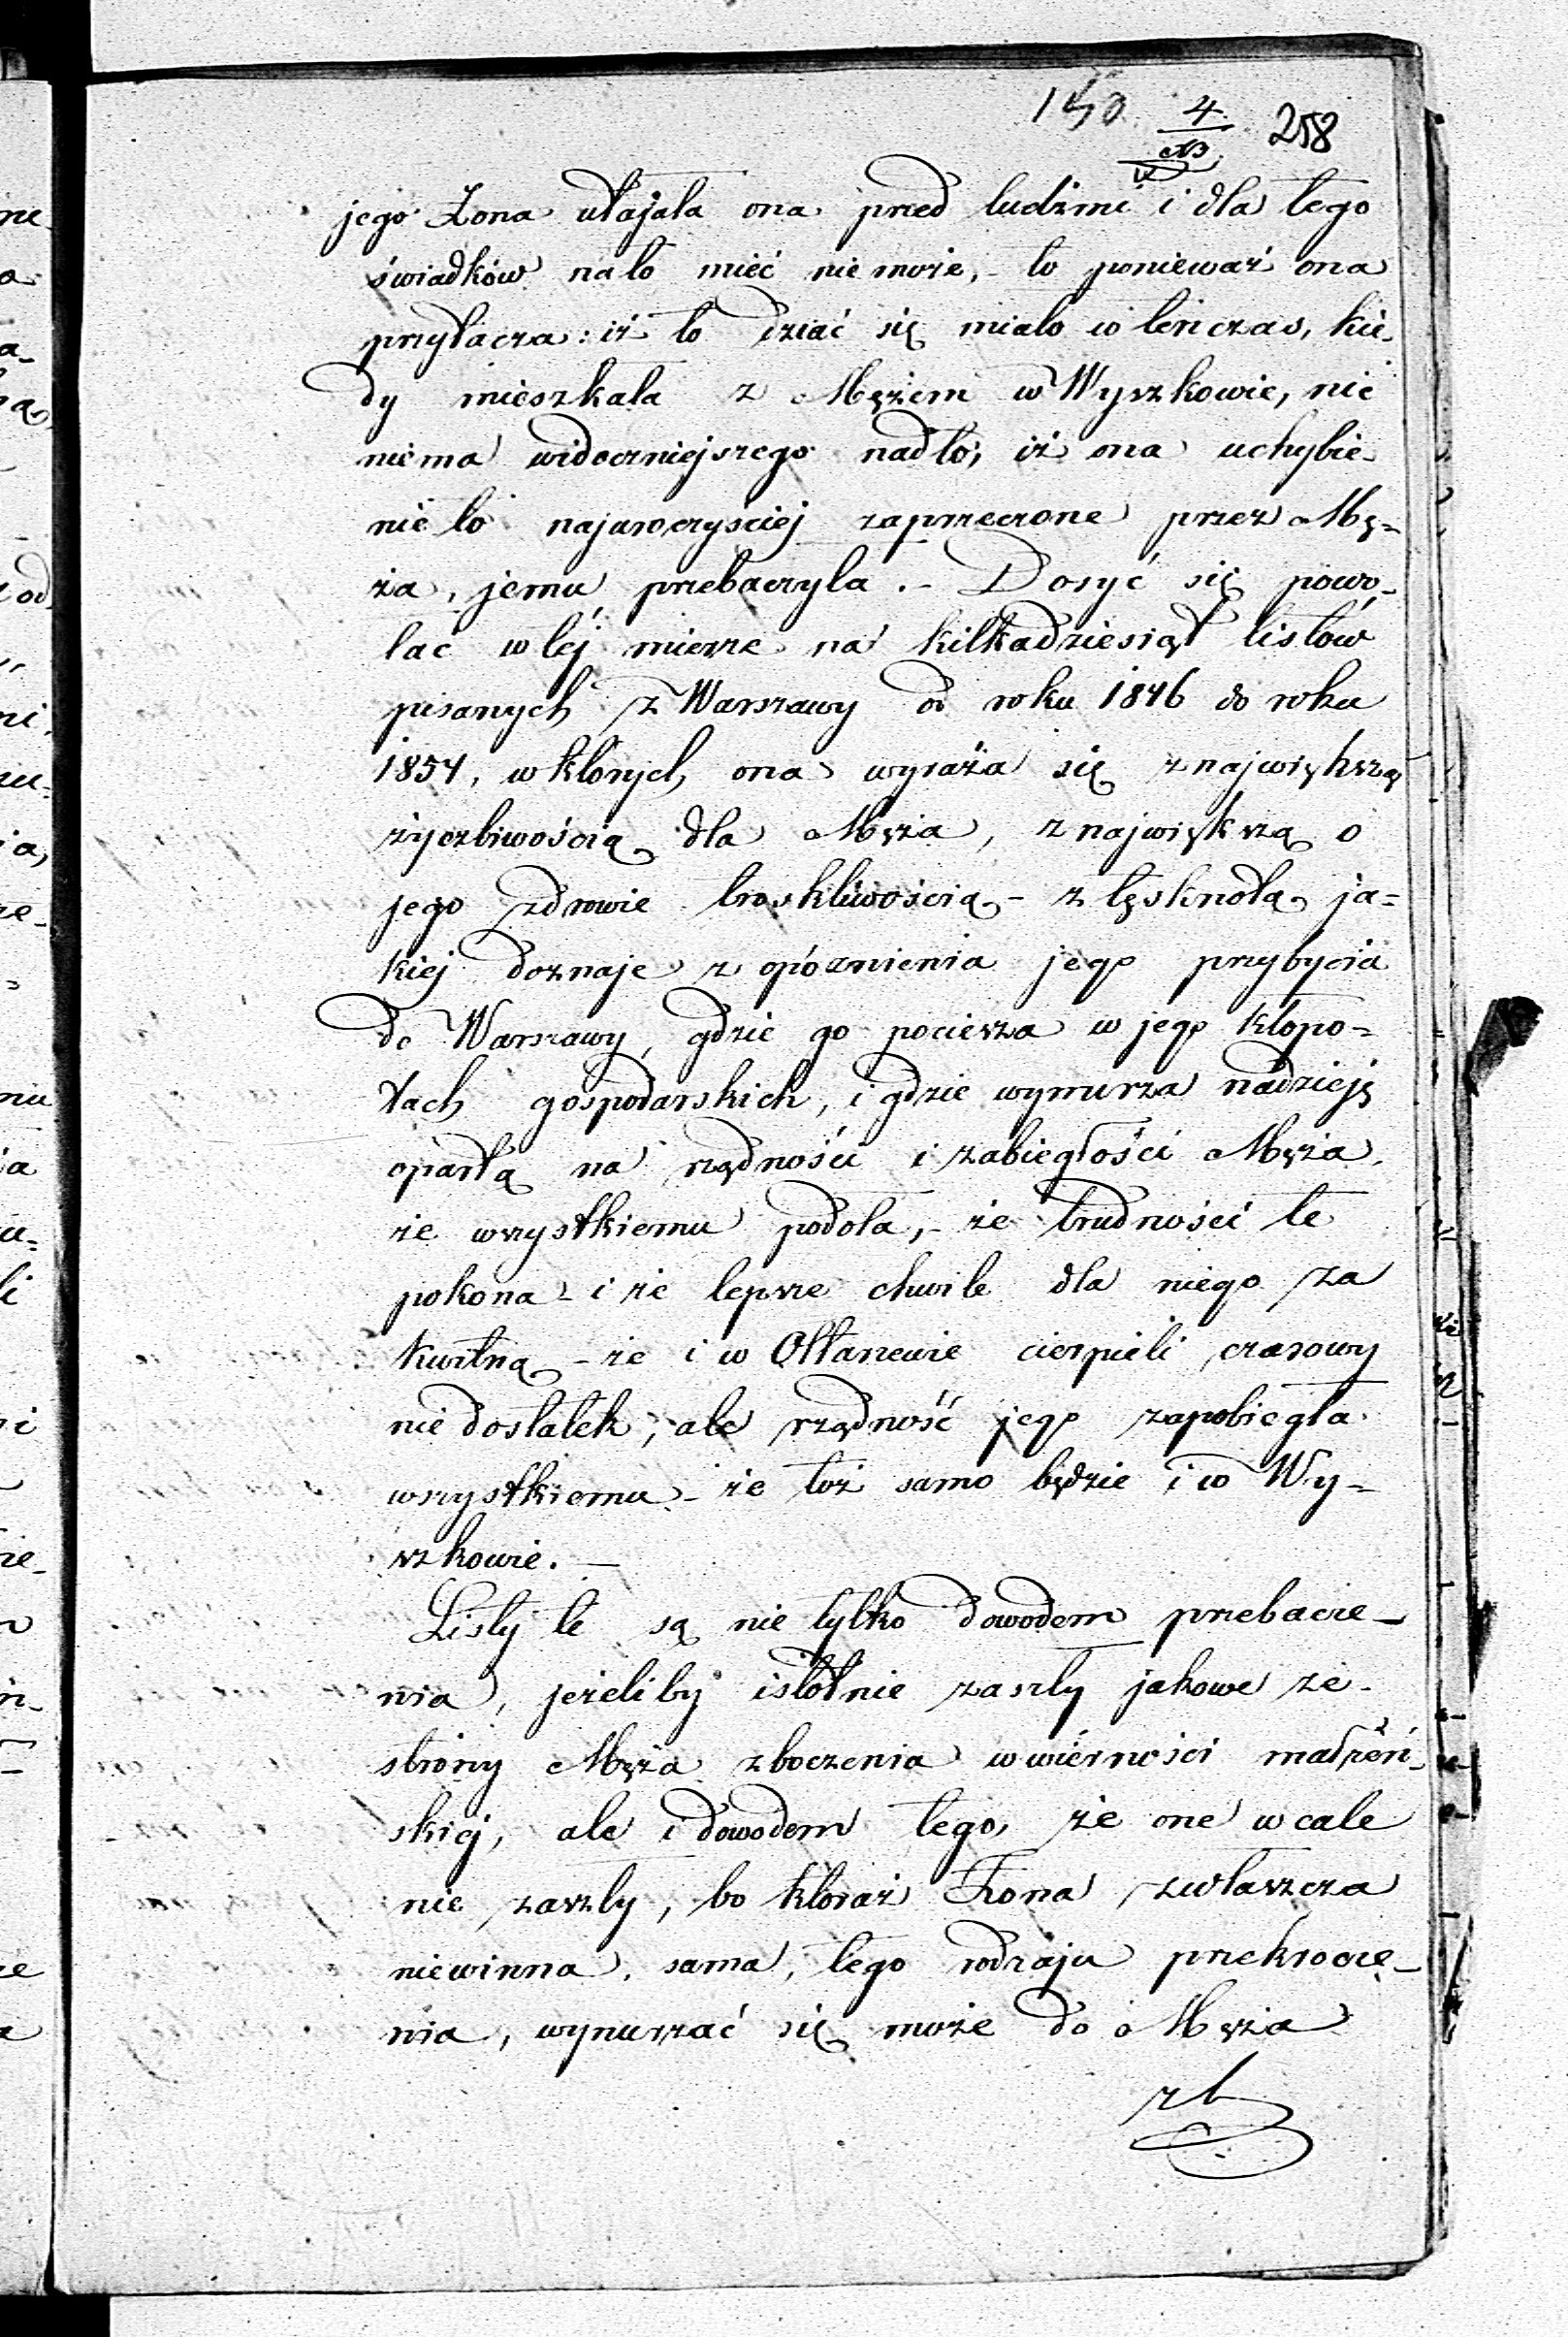 150 4 258
jego Żona utajała ona przed ludźmi i dla tego
świadków nato mieć nie może, - to ponieważ ona
przytacza: iż to dziać się miało w tenczas, kie-
dy mieszkała z Mężem w Wyszkowie, nic
niema widoczniejszego nadto; iż ona uchybie-
nie to najuroczyściej zaprzeczone przez Mę=
ża, jemu przebaczyła. - Dosyć się powo-
łać w téj mierze na kilkadziesiąt listów
pisanych z Warszawy od roku 1846 do roku
1854, w których ona wyraża się z największą
życzliwością dla Męża, z największą o
jego zdrowie troskliwością - z tęsknotą ja=
kiej doznaje z opóznienia jego przybycia
do Warszawy, gdzie go pociesza w jego kłopo=
tach gospodarskich, i gdzie wynurza nadzieję
opartą na rządności i zabiegłości Męża,
że wszystkiemu podoła, - że trudności te
pokona - i że lepsze chwile dla niego za
kwitną - że i w Ołtarzewie cierpieli czasowy
nie dostatek, ale rządność jego zapobiegła
wszystkiemu - że toż samo będzie i w Wy=
szkowie. -
Listy te są nie tylko dowodem przebacze-
nia, jeżeliby istotnie zaszły jakowe ze-
strony Męża zboczenia w wiérności małżeń-
skiej, ale i dowodem tego, że one wcale
nie zaszły, bo któraż Żona zwłaszcza
niewinna, sama, tego rodzaju przekrocze-
nia, wynurzać się może do Męża